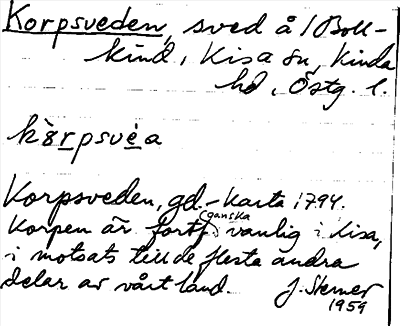 Korpsveden, sved å /Boll-
kind, Kisa sn, Kinda
hd, Östg. l.
kòrpsvèa
Korpsveden, gd. - karta 1794.
Korpen är fortf. (ganska vanlig i Kisa,
i motsats till de flesta andra
delar av vårt land. J. Stemer
1959